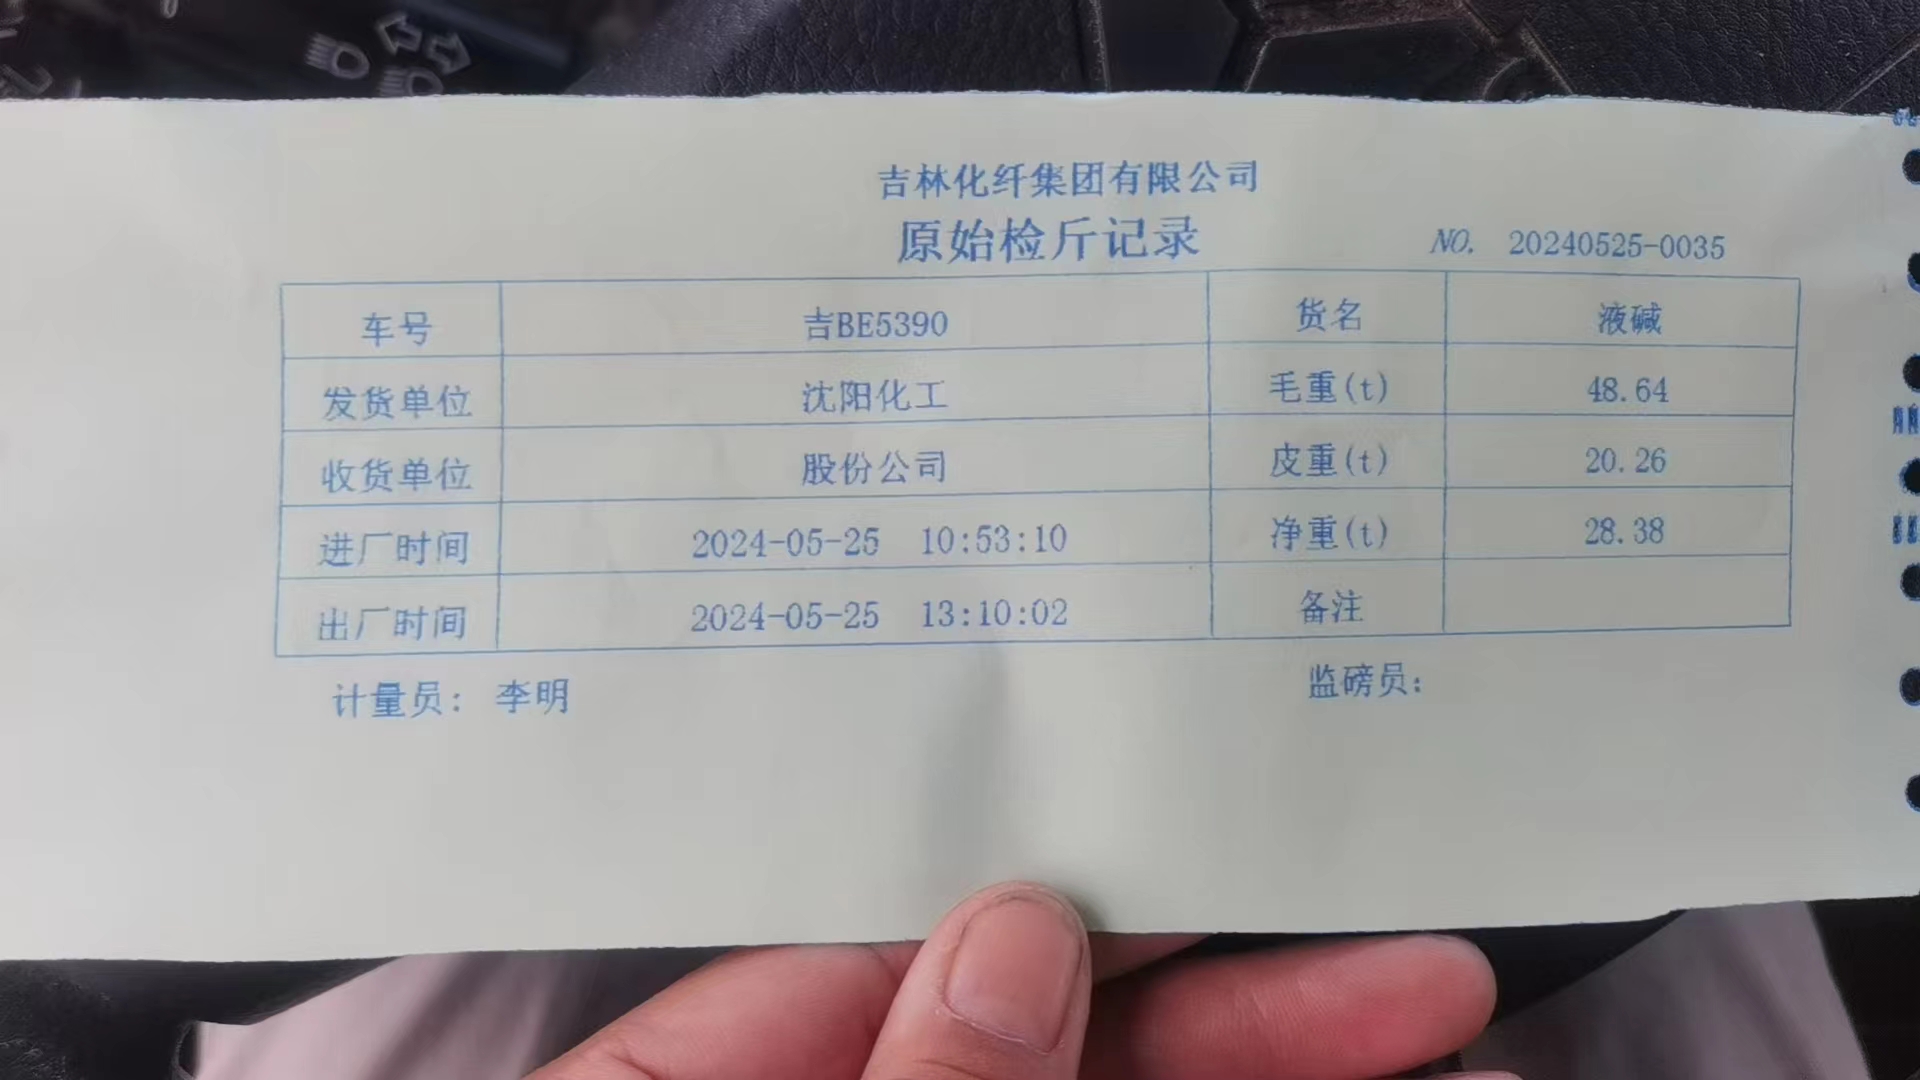 吉林化纤集团有限公司
原始检斤记录
NO. 20240525-0035
车号 吉BE5390 货名 液碱
发货单位 沈阳化工 毛重(t) 48.64
收货单位 股份公司 皮重(t) 20.26
进厂时间 2024-05-25 10:53:10 净重(t) 28.38
出厂时间 2024-05-25 13:10:02 备注
计量员： 李明 监磅员：